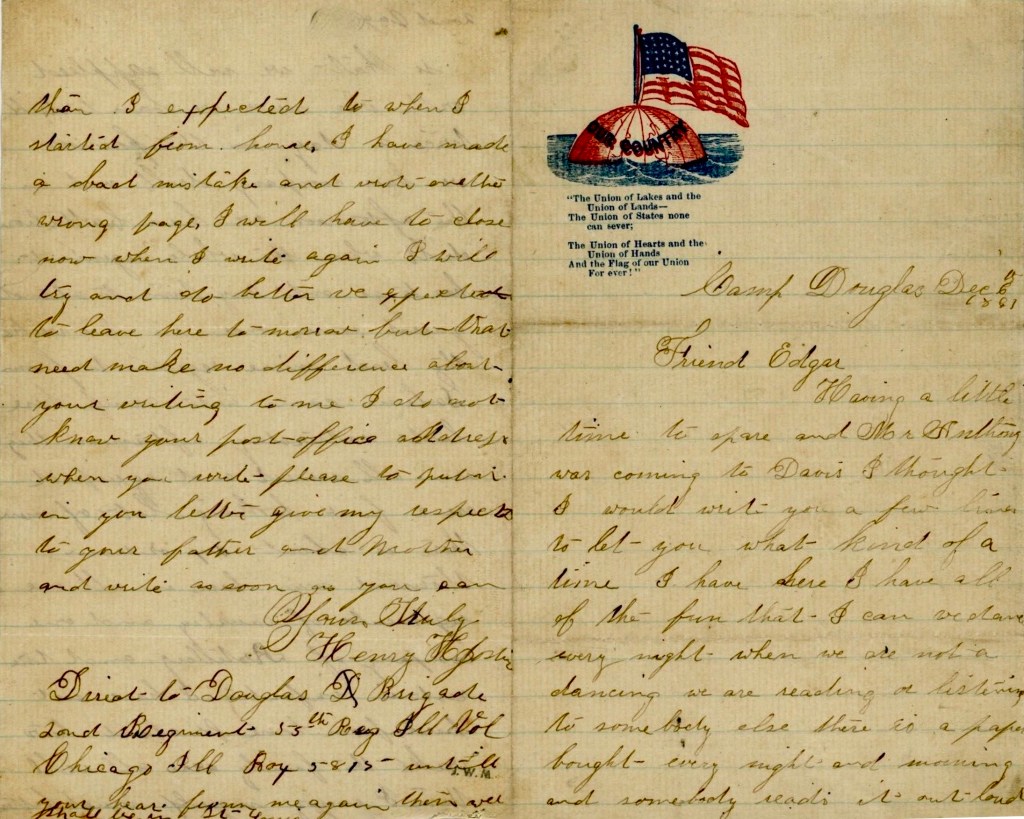 OUR COUNTRY
"The Union of Lakes and the
Union of Lands—
The Union of States none
can sever;
The Union of Hearts and the
Union of Hands
And the Flag of our Union
For ever!"
Camp Douglas Dec 6
1861
Friend Edgar
Having a little
time to spare and Mr Anthony
was coming to Davis I thought
I would write you a few lines
to let you what kind of a
time I have here I have all
of the fun that I can we dance
every night when we are not a
dancing we are reading or listening
to somebody else there is a paper
bought every night and morning
and somebody reads it out loud
than I expected to when I
started from home, I have made
a bad mistake and wrote on the
wrong page, I will have to close
now when I write again I will
try and do better we expected
to leave here to morrow but that
need make no difference about
your writing to me I do not
know your post office address
when you write please to put it
in you letter give my respects
to your father and Mother
and write as soon as you can
Yours Truly
Henry
Direct to Douglas Brigade
2ond Regiment 55th Reg Ill Vol
Chicago Ill Box 5815 untill
J.W.M.
your hear from me again then we
shall be in St